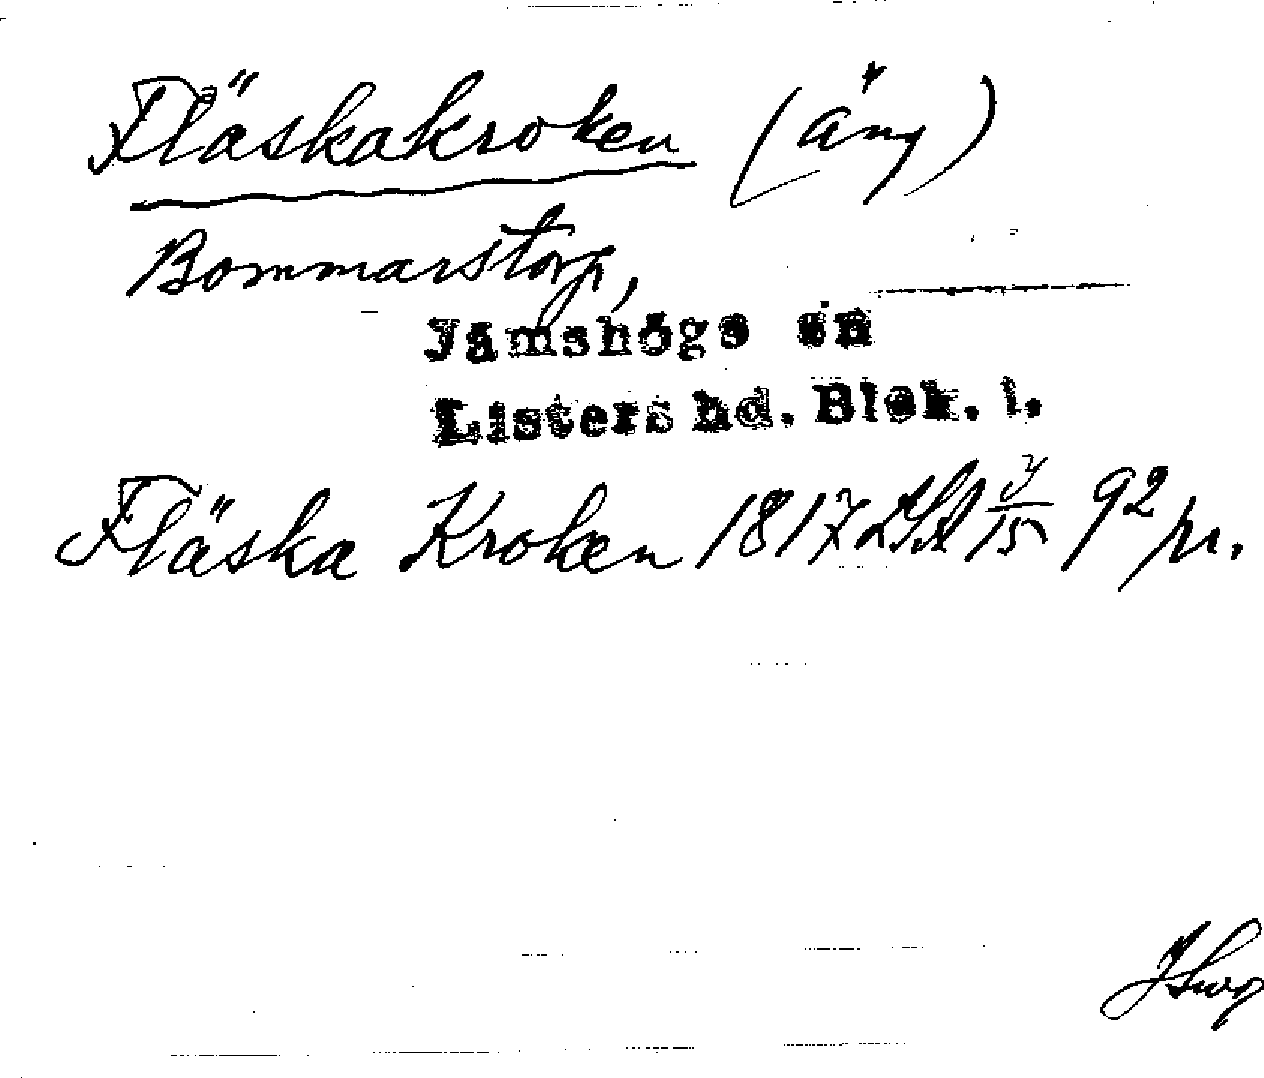 Fläskakroken (äng)
Bommarstorp,
Jämshögs sn
Listers hd. Blek. l.
Fläska Kroken 1817 LSA J/15 92 pr.